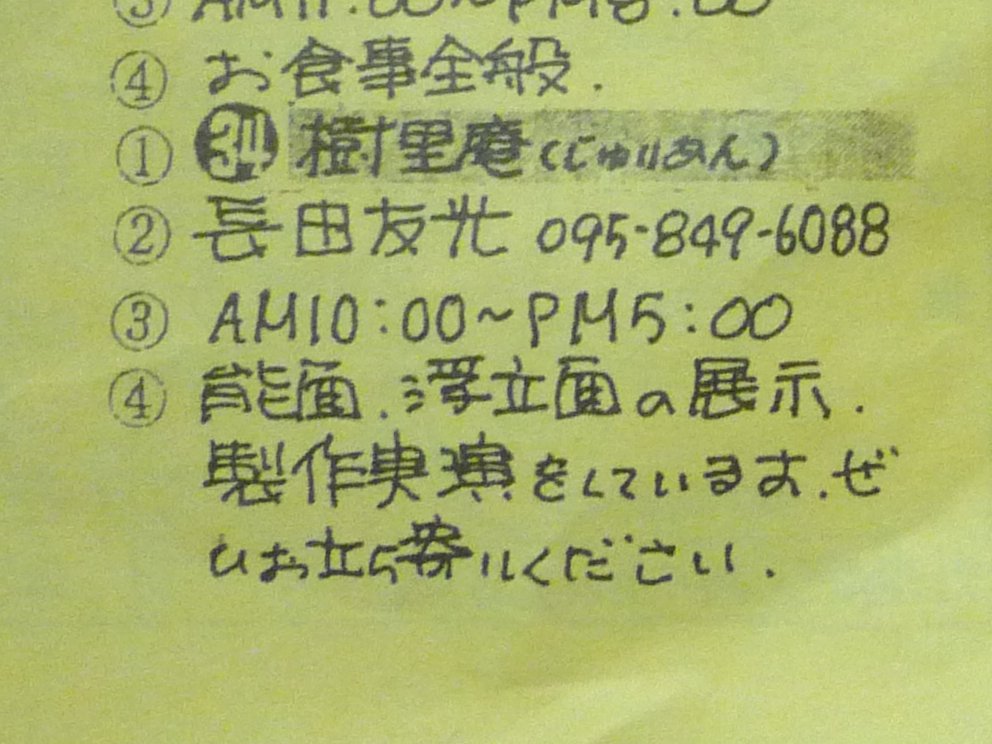 ④ お食事全般.
① 樹里庵(じゅりあん)
② 長田友光 095-849-6088
③ AM10:00~PM5:00
④ 能面.浮立面の展示.
製作実演をしています.ぜ
ひお立ち寄りください.